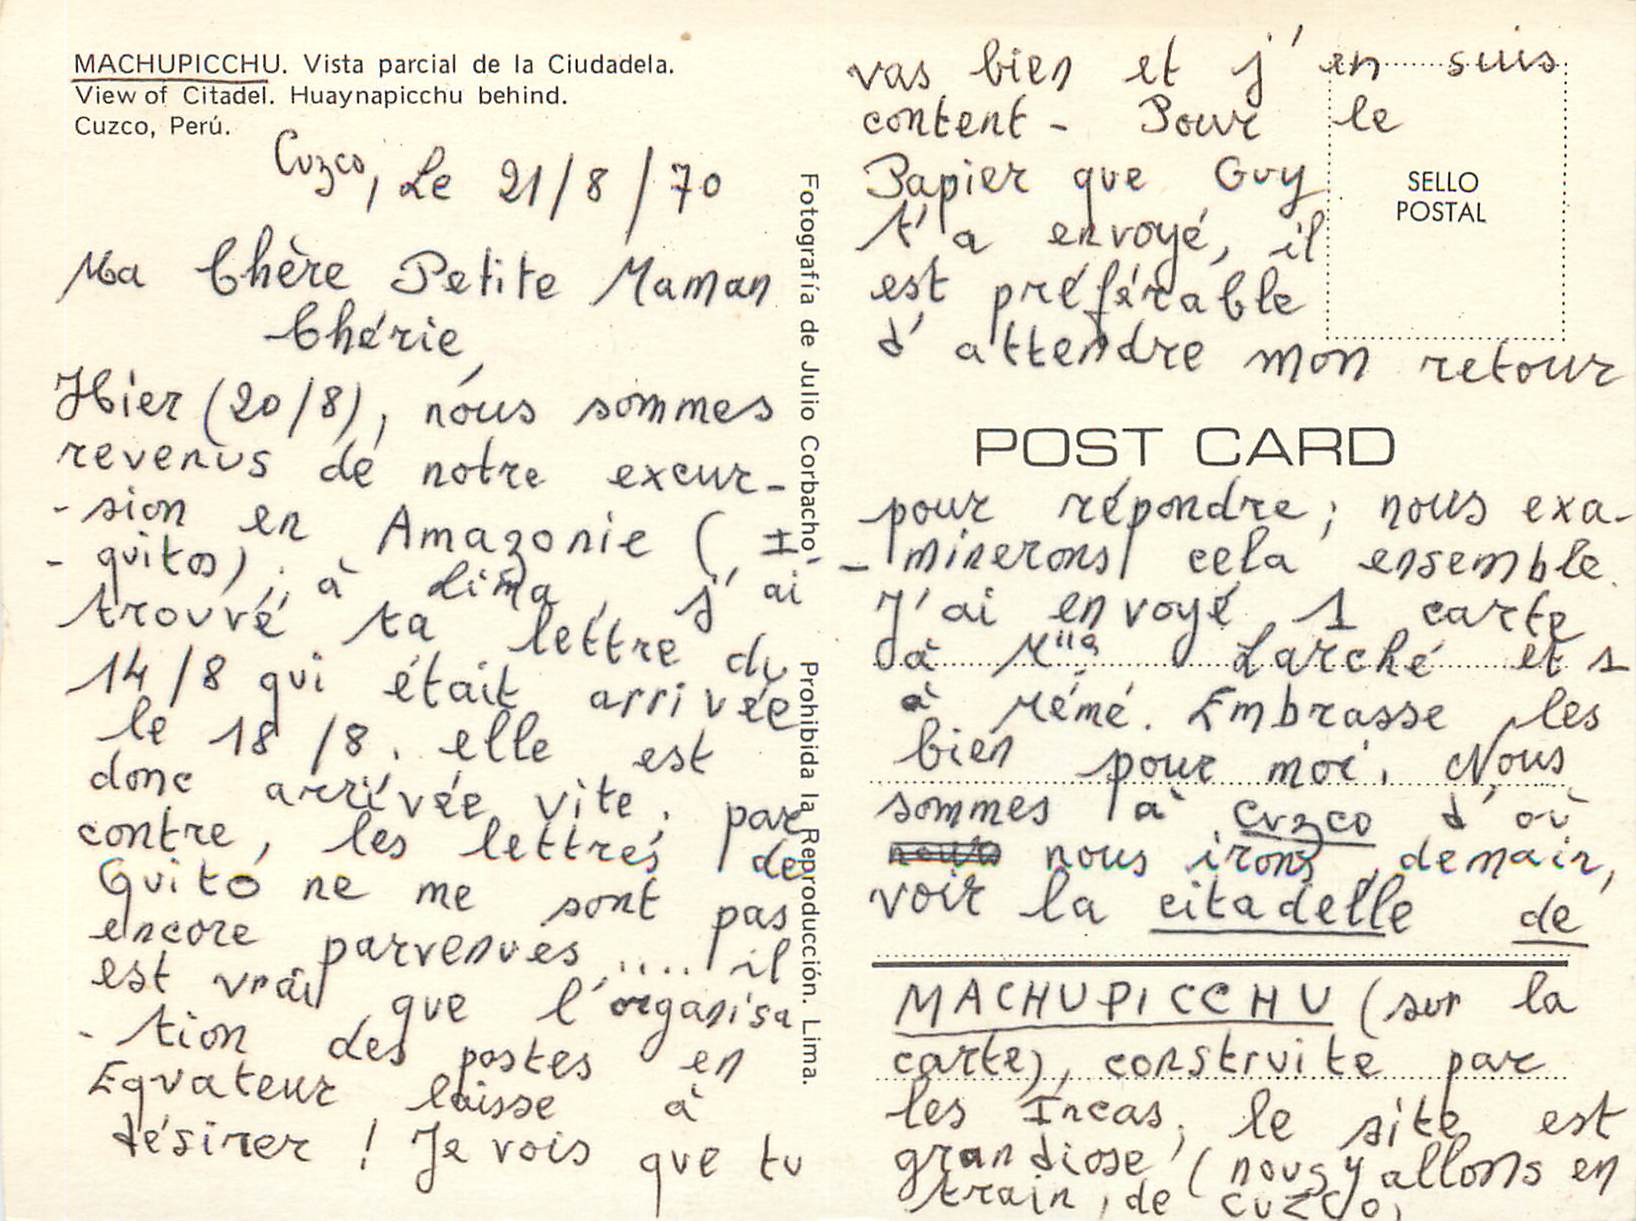 MACHUPICCHU. Vista parcial de la Ciudadela.
View of Citadel. Huaynapicchu behind.
Cuzco, Perú.
Cuzco, Le 21/8/70
Ma Chère Petite Maman
Chérie,
Hier (20/8), nous sommes
revenus de notre excur-
-sion en Amazonie (I-
-quitos) ; à Lima, j'ai
trouvé ta lettre du
14/8 qui était arrivée
le 18/8. elle est
donc arrivée vite. par
contre, les lettres de
Quito ne me sont pas
encore parvenues .... il
est vrai que l'organisa
-tion des postes en
Equateur laisse à
désirer ! Je vois que tu
Fotografía de Julio Corbacho Prohibida la Reproducción. Lima.
vas bien et j'en suis
content - Pour le
Papier que Guy
t'a envoyé, il
est préférable
d'attendre mon retour
SELLO
POSTAL
POST CARD
pour répondre ; nous exa-
-minerons cela ensemble.
J'ai envoyé 1 carte
à Larché et 1
à Mémé. Embrasse les
bien pour moi. Nous
sommes à Cuzco d'où
nous irons, demain,
voir la citadelle de
MACHUPICCHU (sur la
carte), construite par
les Incas, le site est
grandiose (nous y allons en
train, de CUZCO,